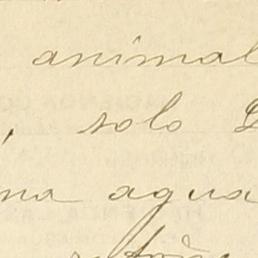 animal
, solo
na agua